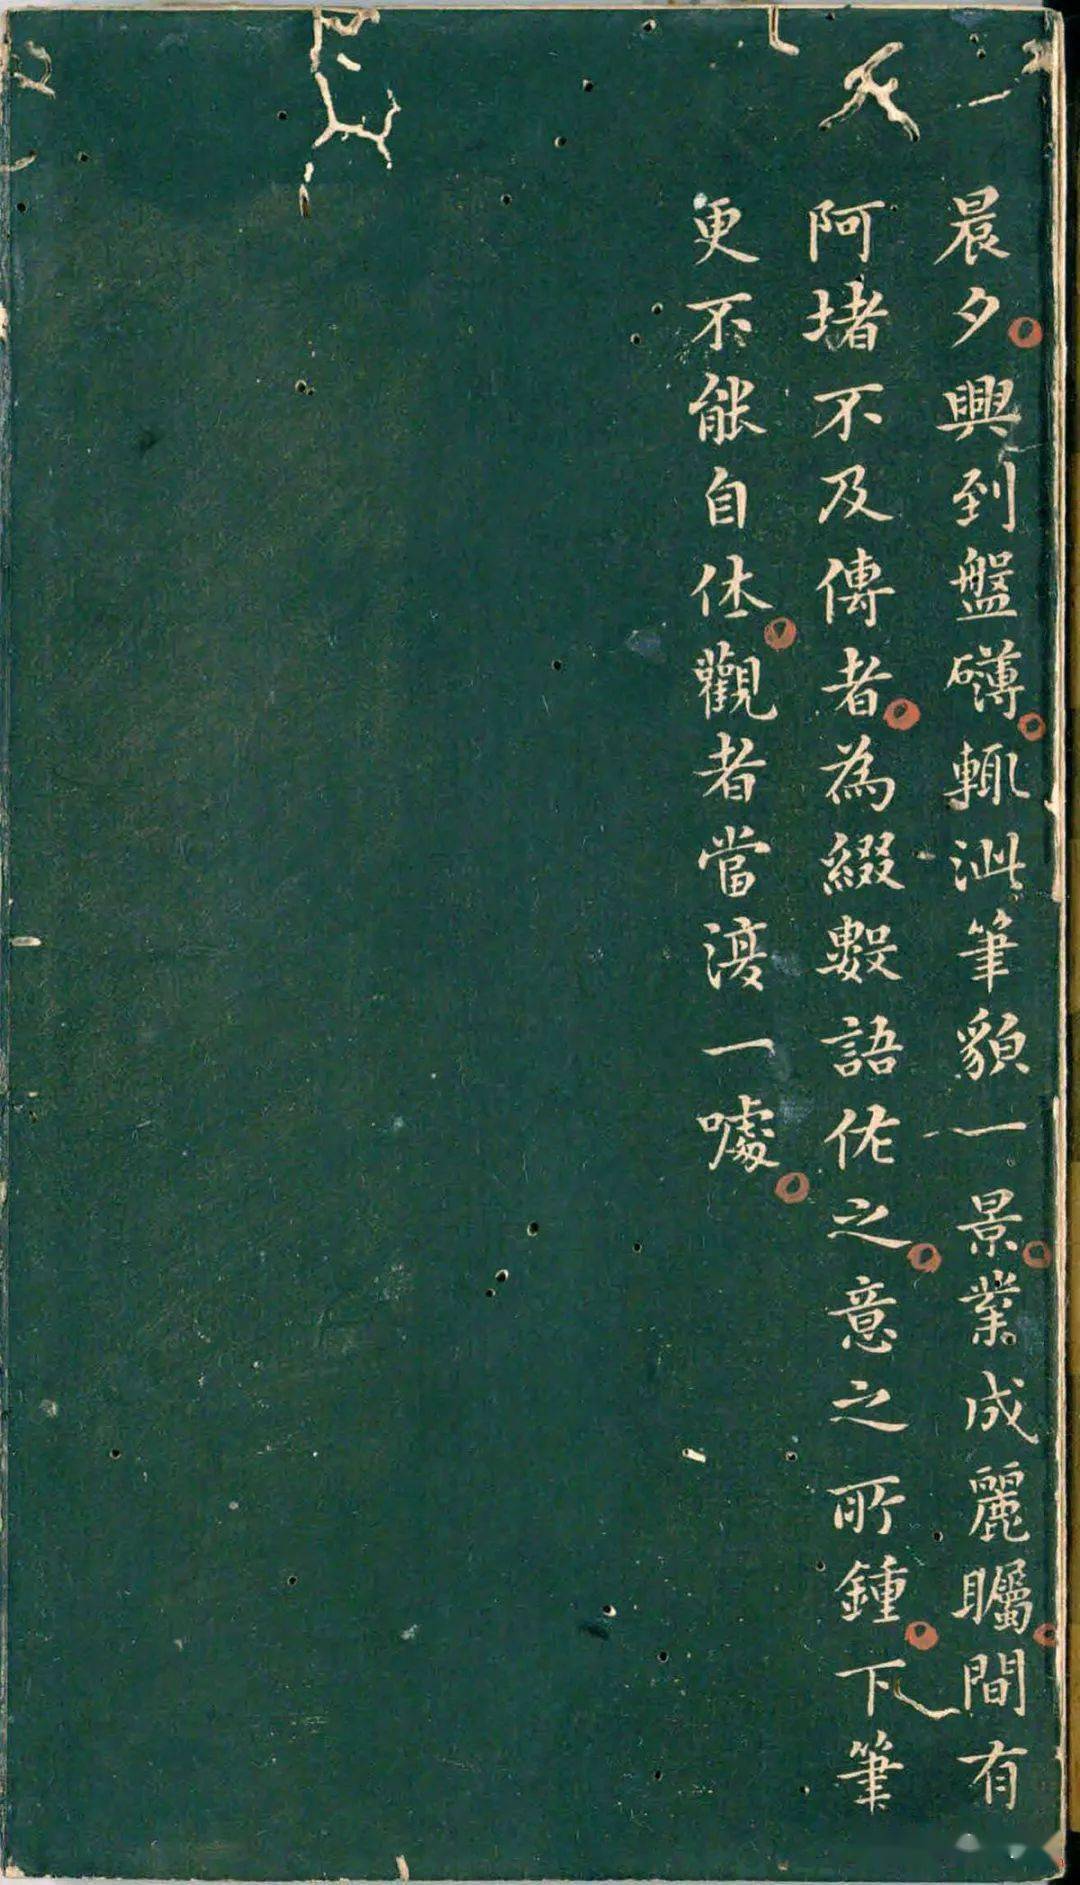 晨夕興到盤礴輒泚筆貌一景業成麗矚間有
阿堵不及傳者為綴數語佐之意之所鍾下筆
更不能自休觀者當復一噱